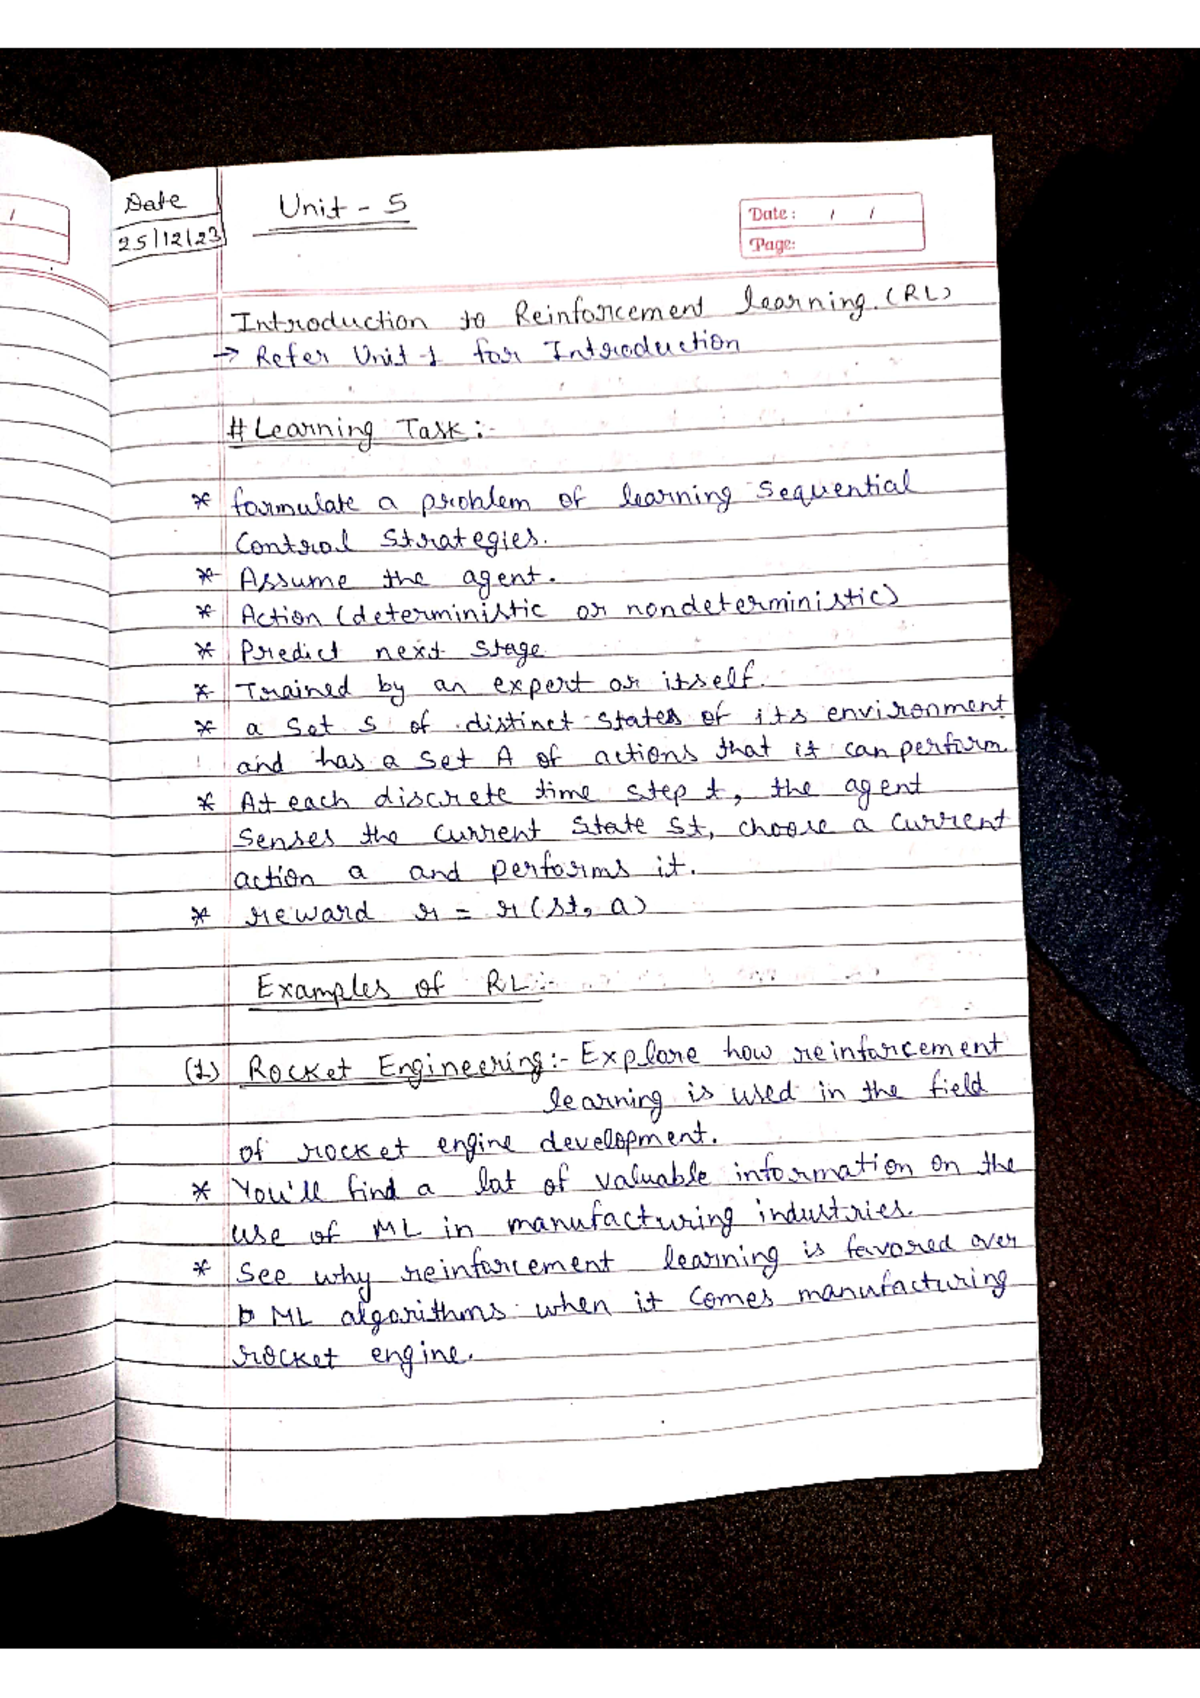 Date
25/12/23
Unit - 5
Date: / /
Page:
Introduction to Reinforcement learning. (RL)
→ Refer Unit-1 for Introduction
# Learning Task :-
* formulate a problem of learning Sequential
Control Strategies.
* Assume the agent.
* Action (deterministic or nondeterministic)
* Predict next stage
* Trained by an expert or itself.
* a set S of distinct states of its environment
and has a Set A of actions that it can perform.
* At each discrete time step t, the agent
senses the current state St, choose a current
action a and performs it.
* reward r = r(st, a)
Examples of RL :-
(1) Rocket Engineering:- Explore how reinforcement
learning is used in the field
of rocket engine development.
* You'll find a lot of valuable information on the
use of ML in manufacturing industries.
* See why reinforcement learning is favored over
ML algorithms when it comes manufacturing
rocket engine.